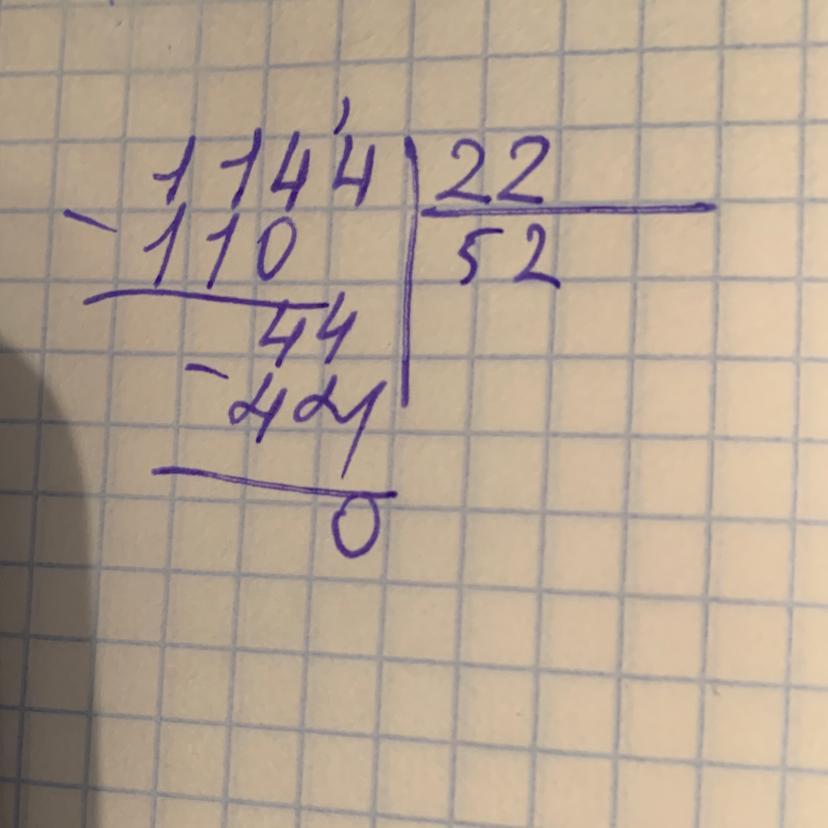 1144 22
- 110 52
44
- 44
0